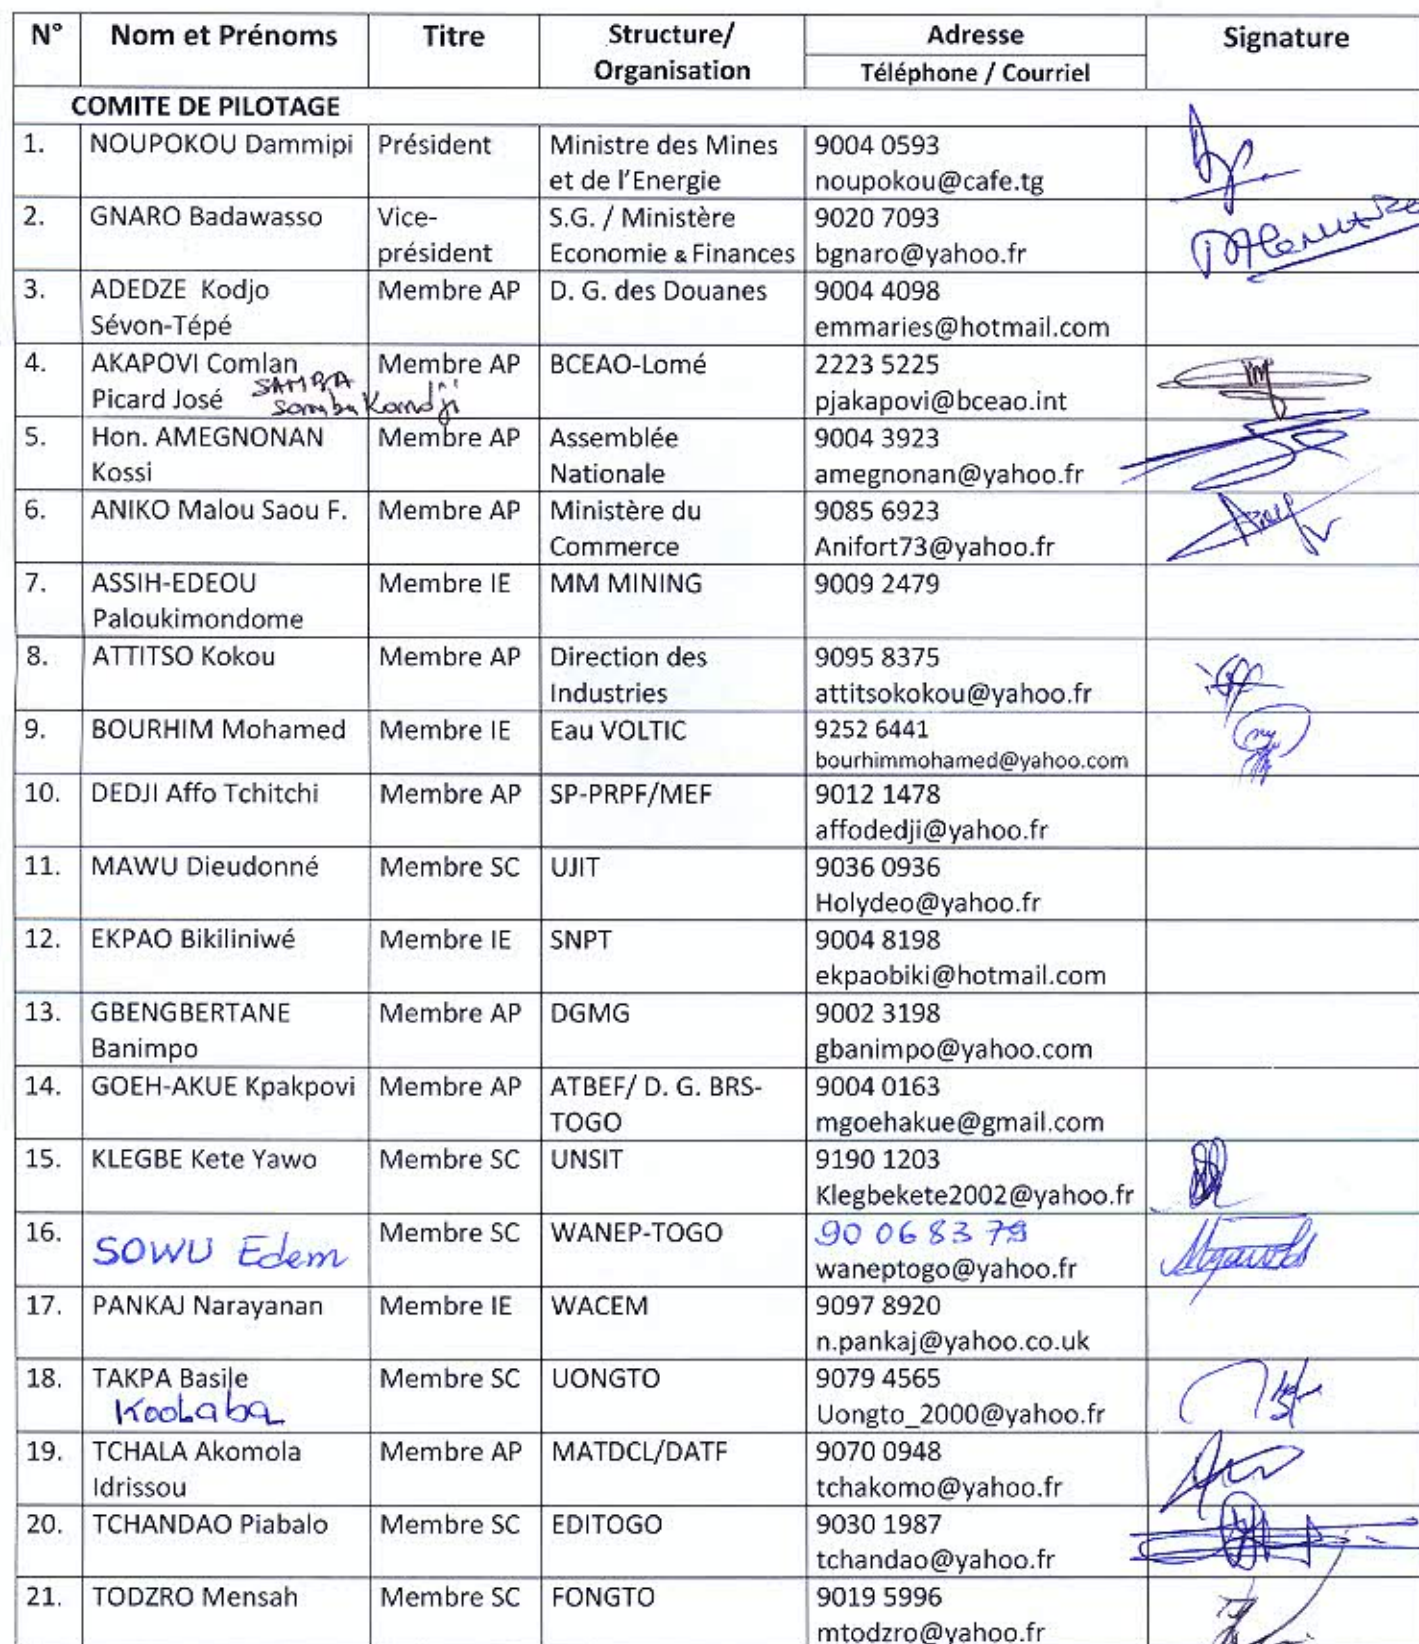 N° Nom et Prénoms Titre Structure/ Organisation Adresse Signature
Téléphone / Courriel
COMITE DE PILOTAGE
1. NOUPOKOU Dammipi Président Ministre des Mines 9004 0593
et de l'Energie noupokou@cafe.tg
2. GNARO Badawasso Vice- S.G. / Ministère 9020 7093
président Economie & Finances bgnaro@yahoo.fr
3. ADEDZE Kodjo Membre AP D. G. des Douanes 9004 4098
Sévon-Tépé emmaries@hotmail.com
4. AKAPOVI Comlan Membre AP BCEAO-Lomé 2223 5225
Picard José SAMBA pjakapovi@bceao.int
5. Hon. AMEGNONAN Membre AP Assemblée 9004 3923
Kossi Nationale amegnonan@yahoo.fr
6. ANIKO Malou Saou F. Membre AP Ministère du 9085 6923
Commerce Anifort73@yahoo.fr
7. ASSIH-EDEOU Membre IE MM MINING 9009 2479
Paloukimondome
8. ATTITSO Kokou Membre AP Direction des 9095 8375
Industries attitsokokou@yahoo.fr
9. BOURHIM Mohamed Membre IE Eau VOLTIC 9252 6441
bourhimmohamed@yahoo.com
10. DEDJI Affo Tchitchi Membre AP SP-PRPF/MEF 9012 1478
affodedji@yahoo.fr
11. MAWU Dieudonné Membre SC UJIT 9036 0936
Holydeo@yahoo.fr
12. EKPAO Bikiliniwé Membre IE SNPT 9004 8198
ekpaobiki@hotmail.com
13. GBENGBERTANE Membre AP DGMG 9002 3198
Banimpo gbanimpo@yahoo.com
14. GOEH-AKUE Kpakpovi Membre AP ATBEF/ D. G. BRS- 9004 0163
TOGO mgoehakue@gmail.com
15. KLEGBE Kete Yawo Membre SC UNSIT 9190 1203
Klegbekete2002@yahoo.fr
16. SOWU Edem Membre SC WANEP-TOGO 90 06 83 79
waneptogo@yahoo.fr
17. PANKAJ Narayanan Membre IE WACEM 9097 8920
n.pankaj@yahoo.co.uk
18. TAKPA Basile Membre SC UONGTO 9079 4565
Uongto_2000@yahoo.fr
19. TCHALA Akomola Membre AP MATDCL/DATF 9070 0948
Idrissou tchakomo@yahoo.fr
20. TCHANDAO Piabalo Membre SC EDITOGO 9030 1987
tchandao@yahoo.fr
21. TODZRO Mensah Membre SC FONGTO 9019 5996
mtodzro@yahoo.fr